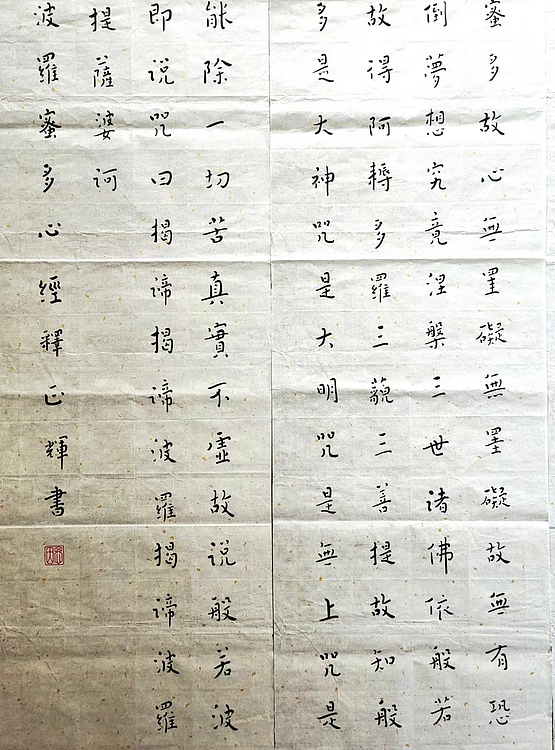 蜜多故心無罣礙無罣礙故無有恐
倒夢想究竟涅槃三世諸佛依般若
故得阿耨多羅三藐三菩提故知般
多是大神咒是大明咒是無上咒是
能除一切苦真實不虛故說般若波
即說咒曰揭諦揭諦波羅揭諦波羅
提薩婆訶
波羅蜜多心經釋正輝書